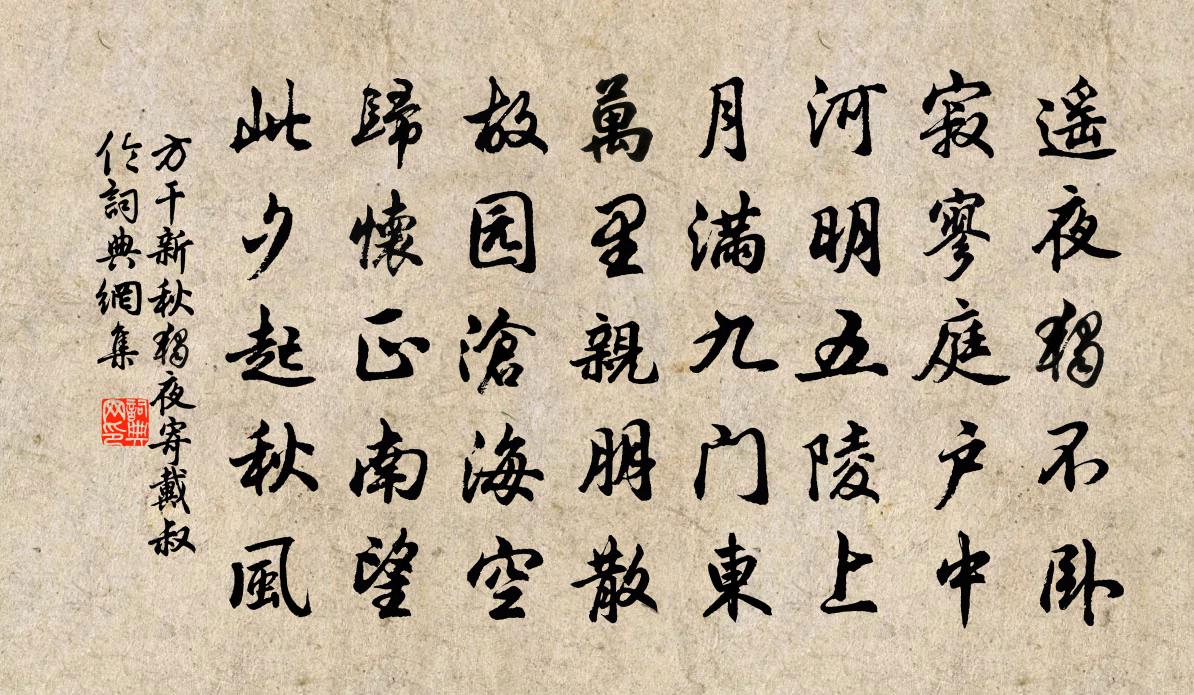 遥夜獨不卧
寂寥庭户中
河明五陵上
月滿九门東
萬里親朋散
故园滄海空
歸懷正南望
此夕起秋風
方干新秋獨夜寄戴叔
伦詞典網集
詞典
网印